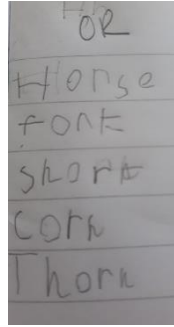 OR
Horse
fork
short
Corn
Thorn